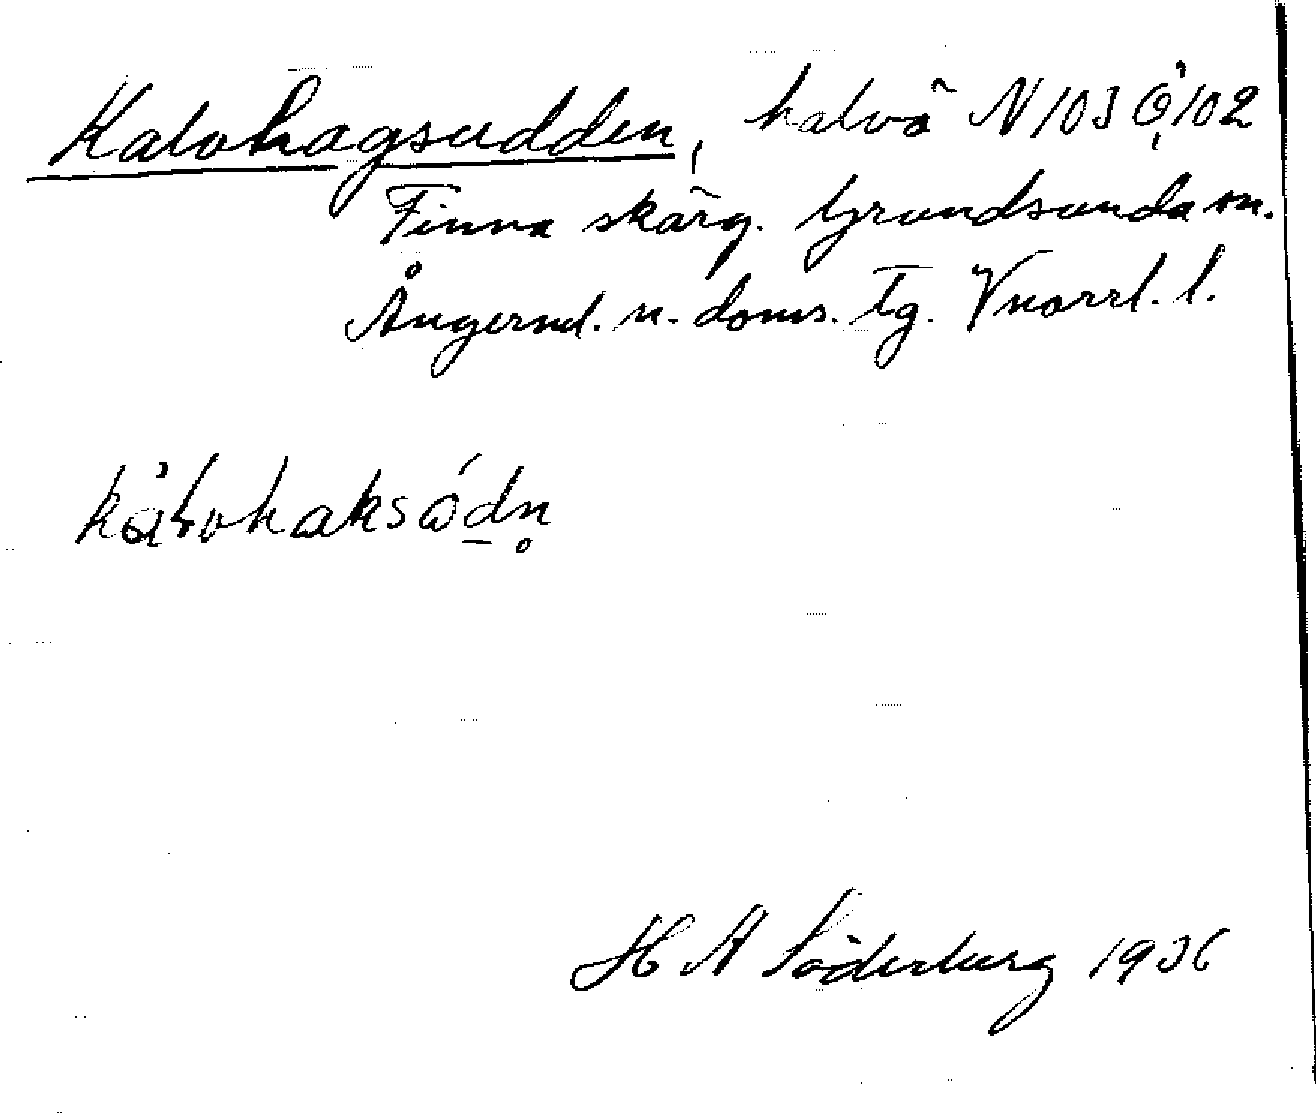 Kalvhagsudden, halvö N103 Ö102
Finna skärg. Grundsunda sn.
Ångermd. n. doms. tg. Vnorrl. l.
H A Söderberg 1936